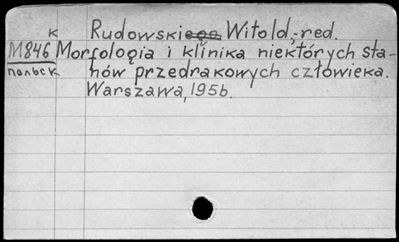 к
Rudowski Witold, red.
М846 Morfologia i klinika niektórych sta-
польск nów przedrakowych człowieka.
Warszawa, 1956.